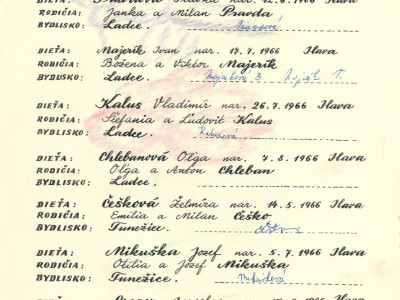 nar. 12.6.1966 Ilava
RODIČIA: Janka a Milan Pravda
BYDLISKO: Ladce.
DIEŤA: Majerík Ivan nar. 17.7.1966 Ilava
RODIČIA: Božena a Viktor Majerík
BYDLISKO: Ladce.
DIEŤA: Kalus Vladimír nar. 26.7.1966 Ilava
RODIČIA: Štefania a Ľudovít Kalus
BYDLISKO: Ladce. Kalusová
DIEŤA: Chlebanová Oľga nar. 7.8.1966 Ilava
RODIČIA: Oľga a Anton Chleban
BYDLISKO: Ladce.
DIEŤA: Češková Želmíra nar. 14.5.1966 Ilava
RODIČIA: Emília a Milan Češko
BYDLISKO: Tunežice.
DIEŤA: Mikuška Jozef nar. 5.7.1966 Ilava
RODIČIA: Otília a Jozef Mikuška
BYDLISKO: Tunežice. Mikušková